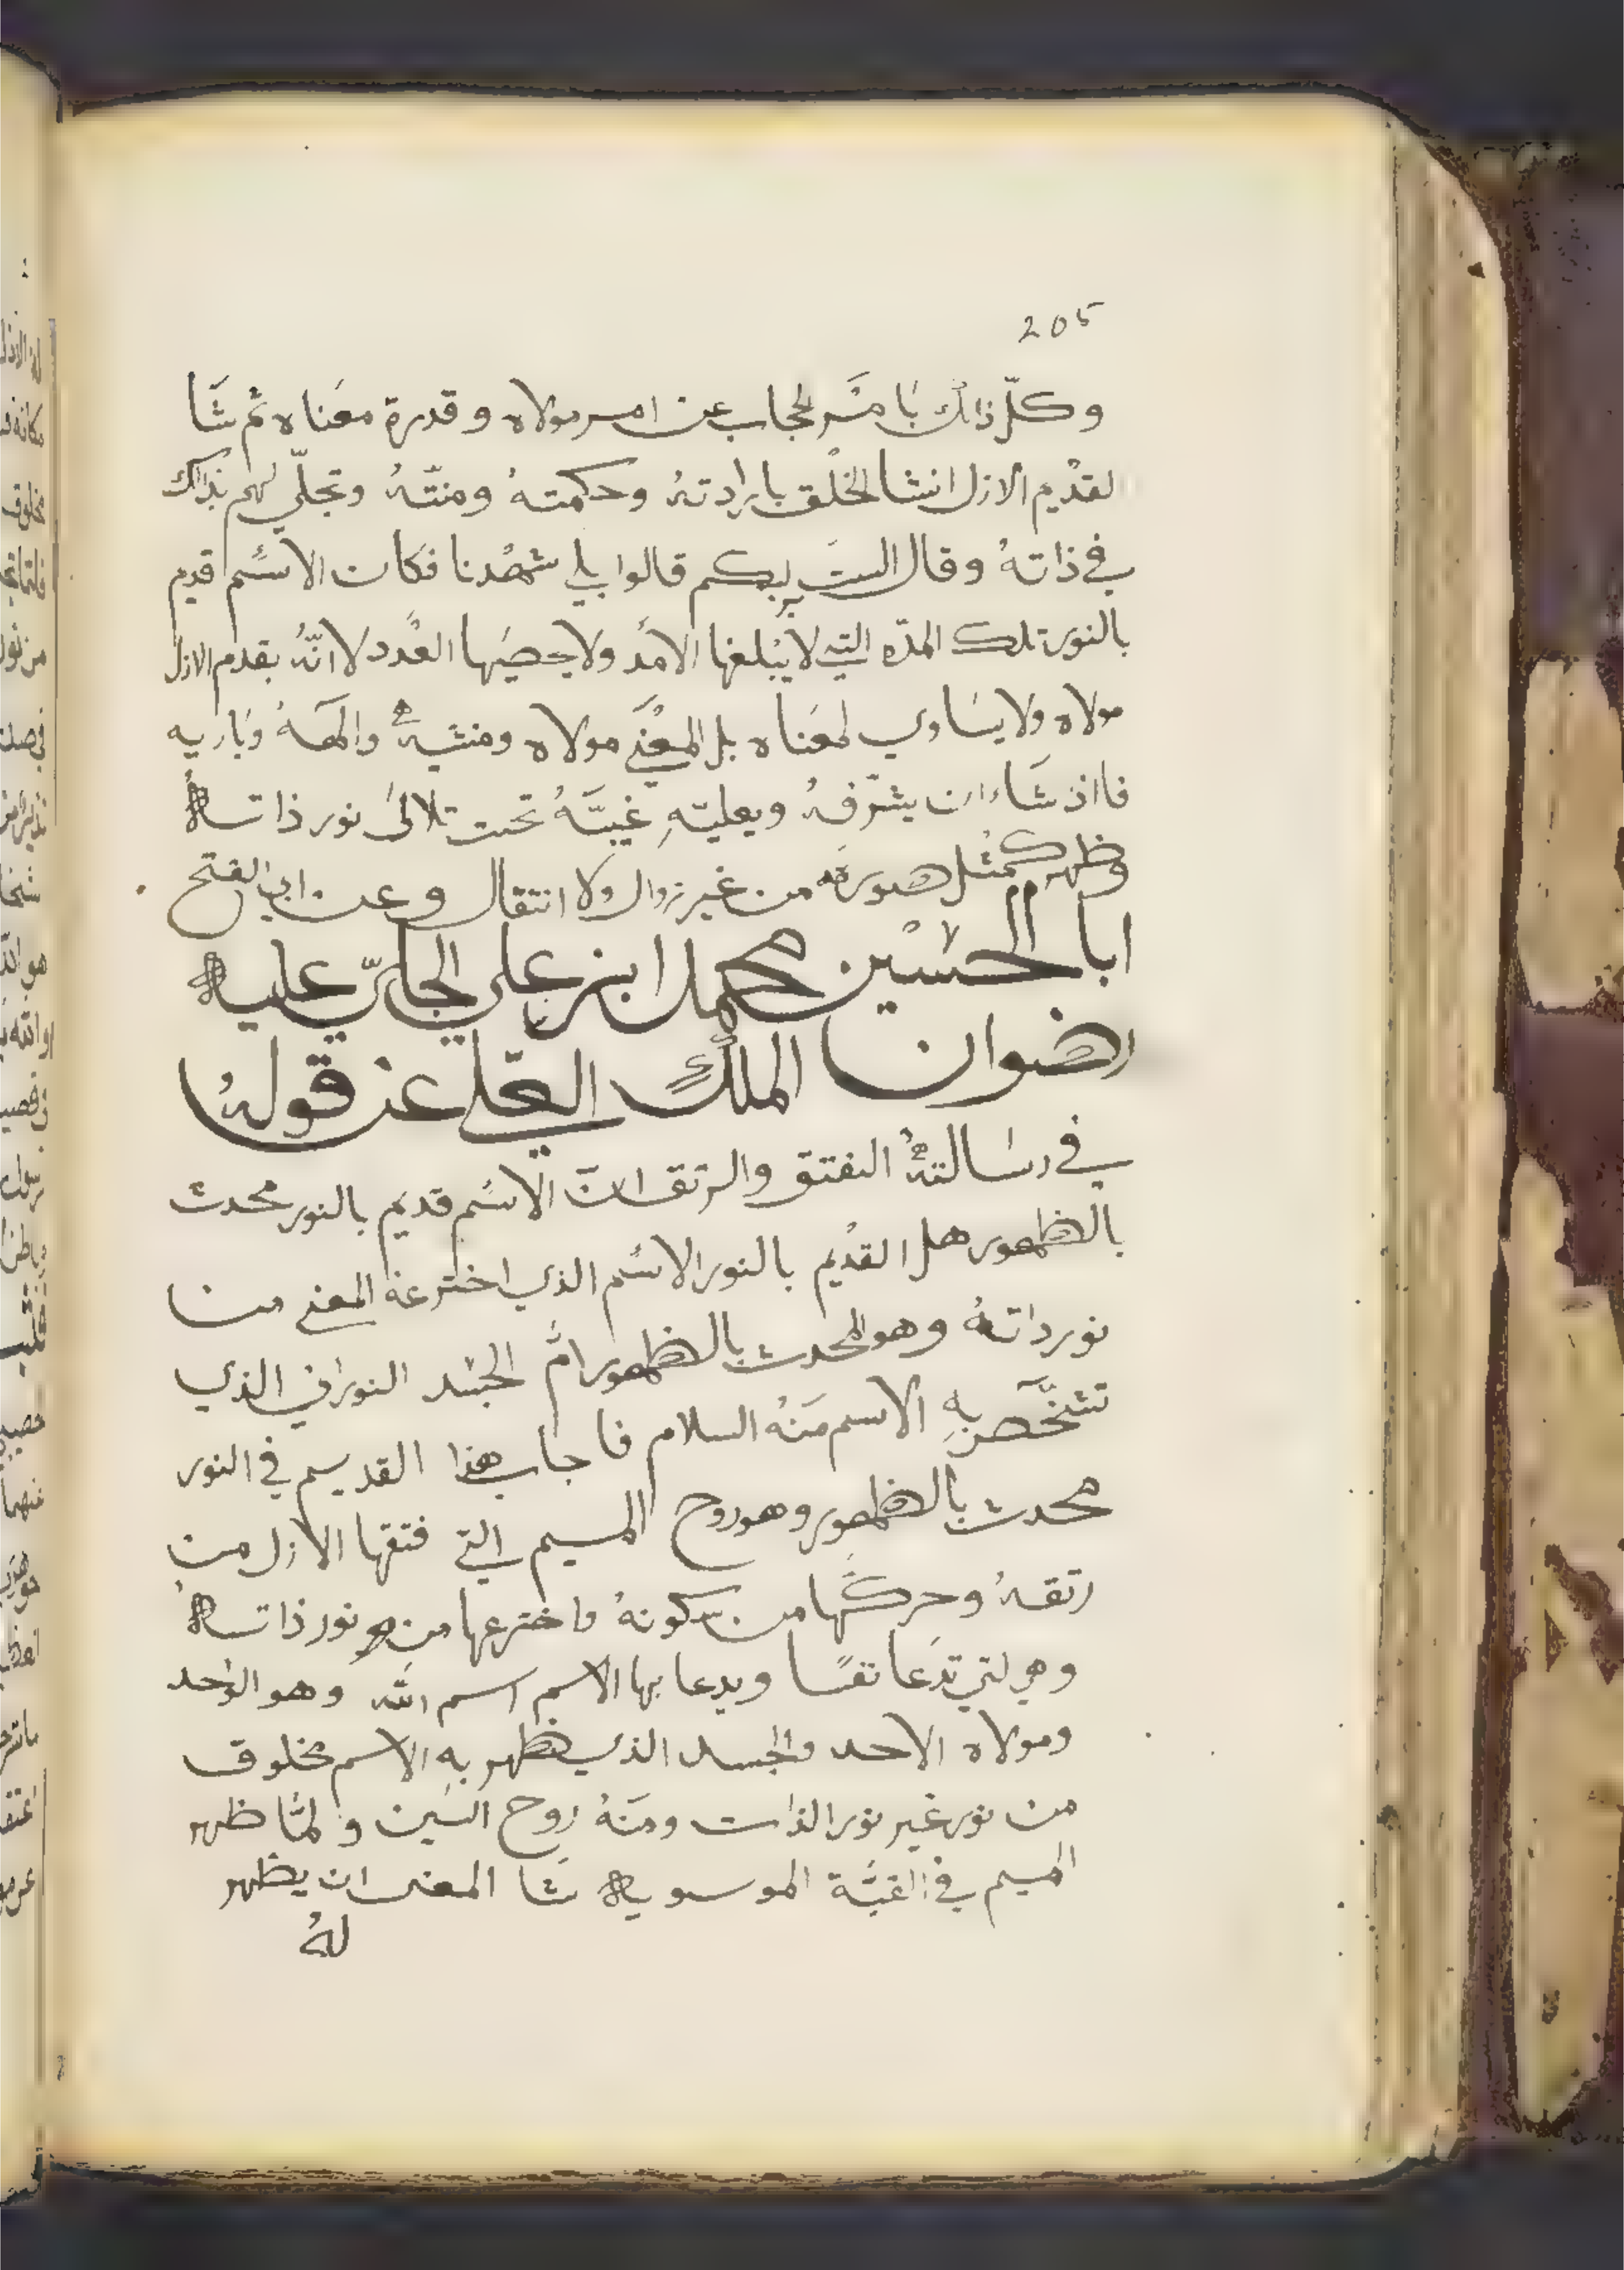 205
وكلّ ذلك بامر الحجاب عن امر مولاه وقدرة معناه ثم شا
لقديم الازل انشا الخلق بارادته وحكمته ومنته وتجلّي لهم بذلك
في ذاته وقال الست بربكم قالوا بلي شهدنا فكان الاسم قديم
بالنور تلك المدّه التي لا يبلغها الامد ولا يحصيها العدد لا انّه بقدم الازل
مولاه ولا يساوي لمعناه بل المعني مولاه ومنشيه والهه وباريه
فااذ شاء ان يشرّفه ويعليه غيبّه تحت تلالئ نور ذاته
وظهر كمثل صورته من غير زوال ولا انتقال وعن ابي الفتح
ابا الحسين محمد ابن علي الجليّ عليه
رضوان الملك العلّي عن قوله
في رسالته الفتق والرتق ان الاسم قديم بالنور محدث
بالظهور هل القديم بالنور الاسم الذي اخترعه المعني من
نور داته وهو المحدث بالظهور ام الجسد النوراني الذي
تشخّص به الاسم منه السلام فاجاب هذا القديم في النور
محدث بالظهور وهو روح الميم التي فتقها الازل من
رتقه وحركها من سكونه واخترعها من نور ذاته
وهي لتي تدعا نفسا ويدعا بها الاسم اسم الله وهو الواحد
ومولاه الاحد والجسد الذي ظهر به الاسم مخلوق
من نور غير نور الذات ومنه روح السين ولمّا ظهر
الميم في القبّة الموسويه شا المعنى ان يظهر
له